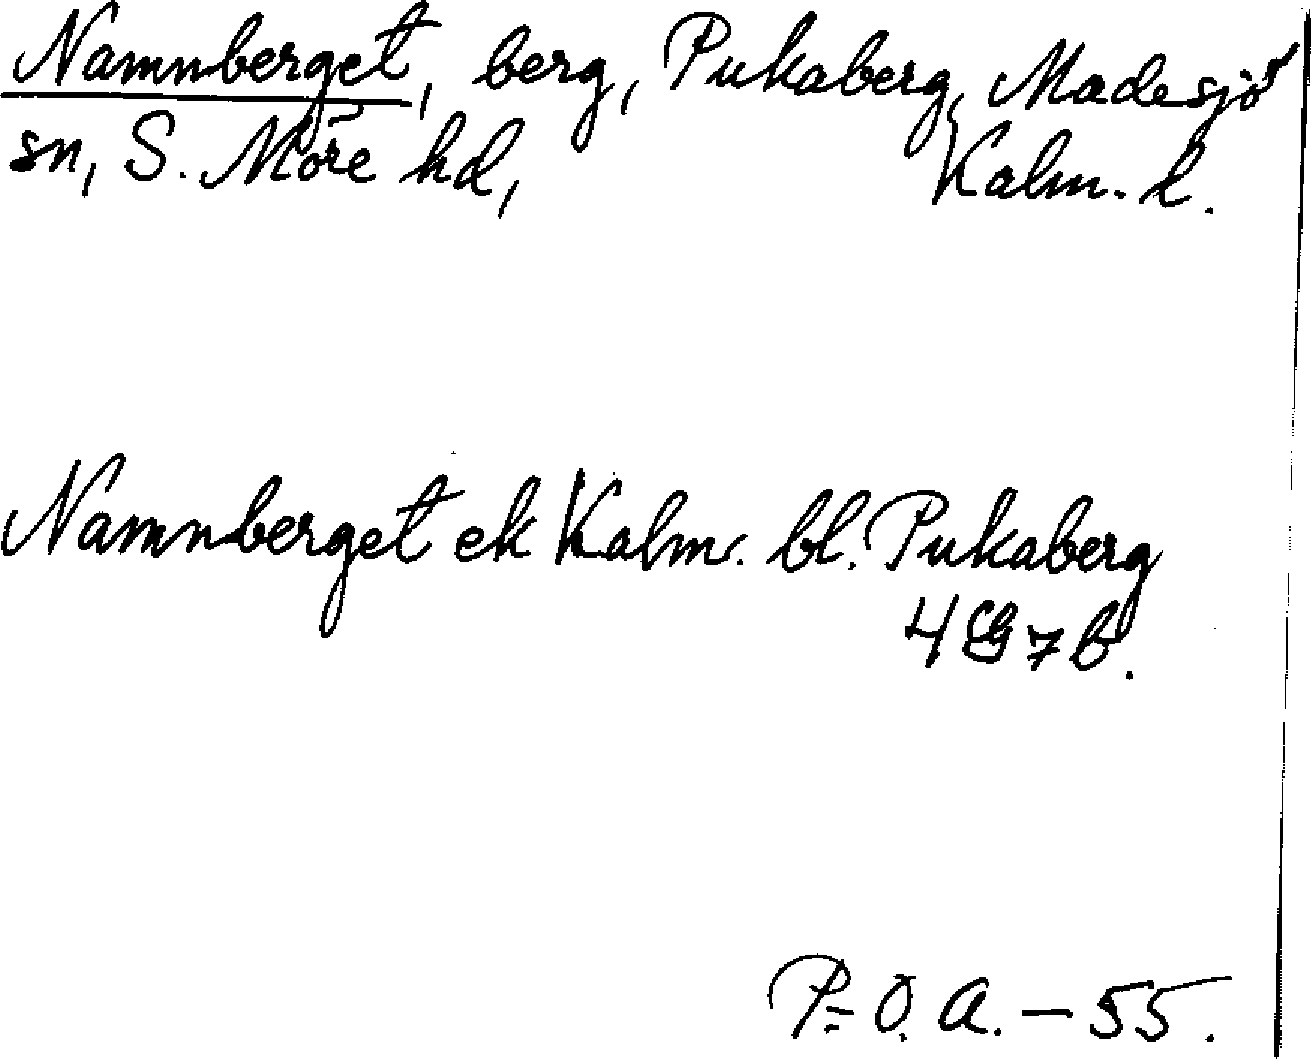 Namnberget, berg, Pukaberg, Madesjö
sn, S. Möre hd, Kalm. l.
Namnberget ek Kalm. bl. Pukaberg
4G7b.
P.-O. A. - 55.